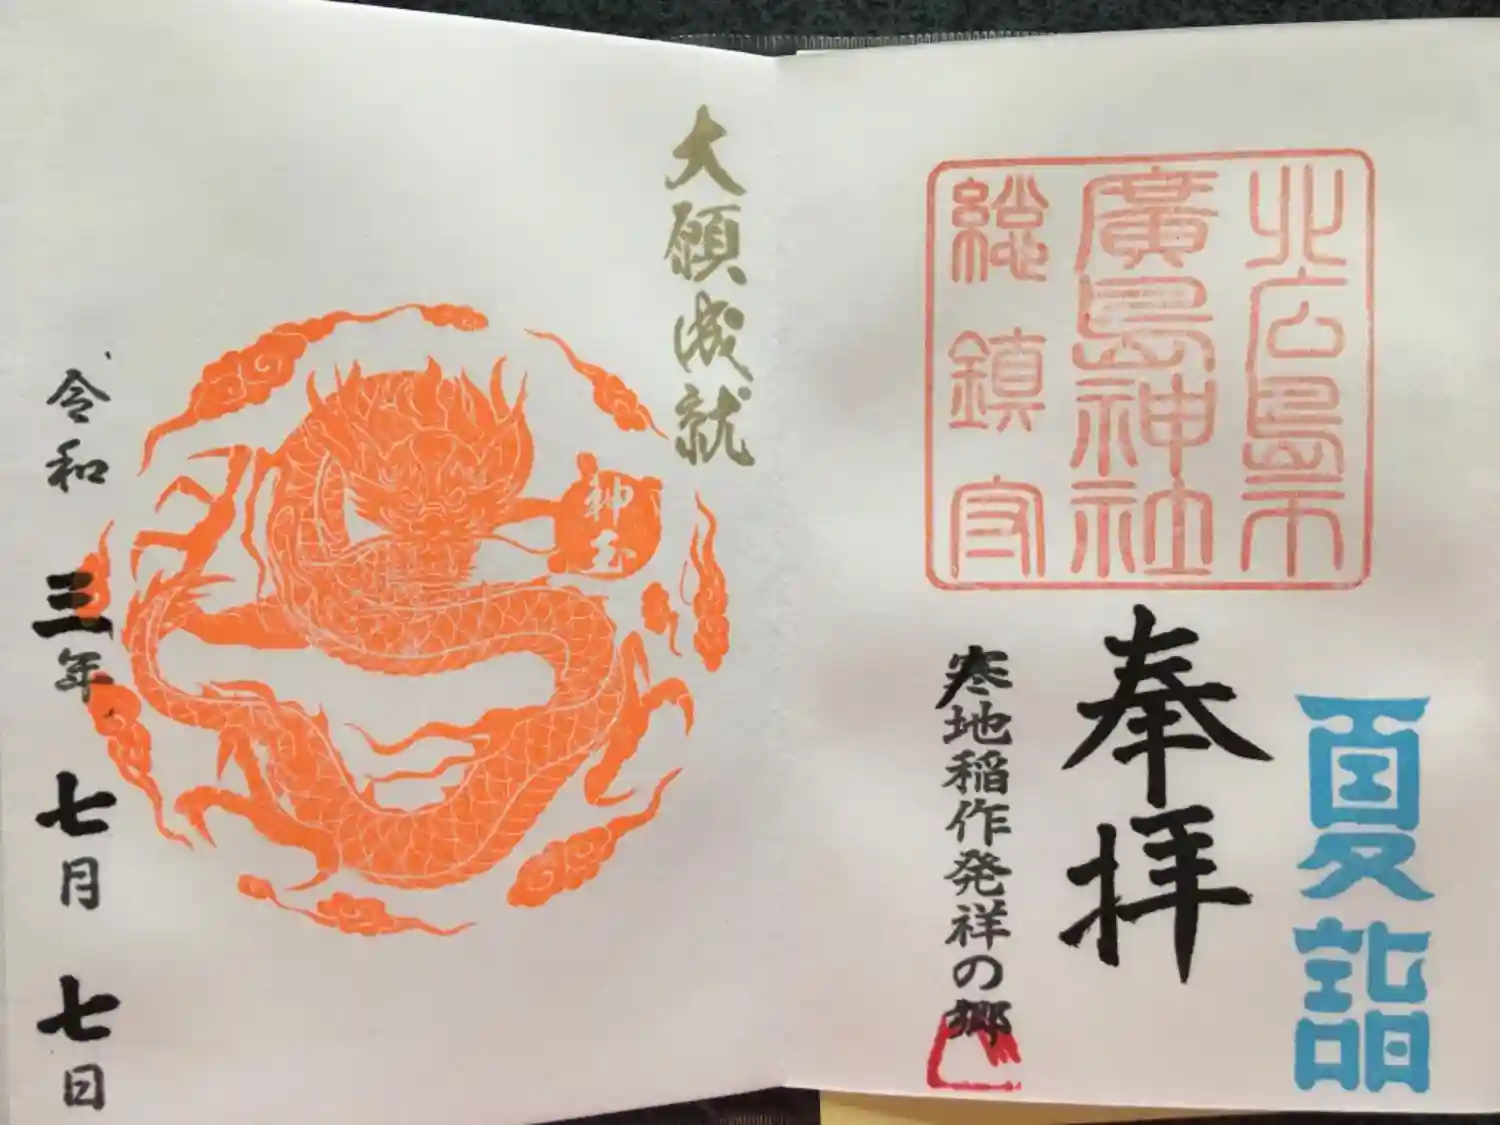 北広島市
廣島神社
総鎮守
夏詣
奉拝
寒地稲作発祥の郷
大願成就
神玉
令和三年七月七日